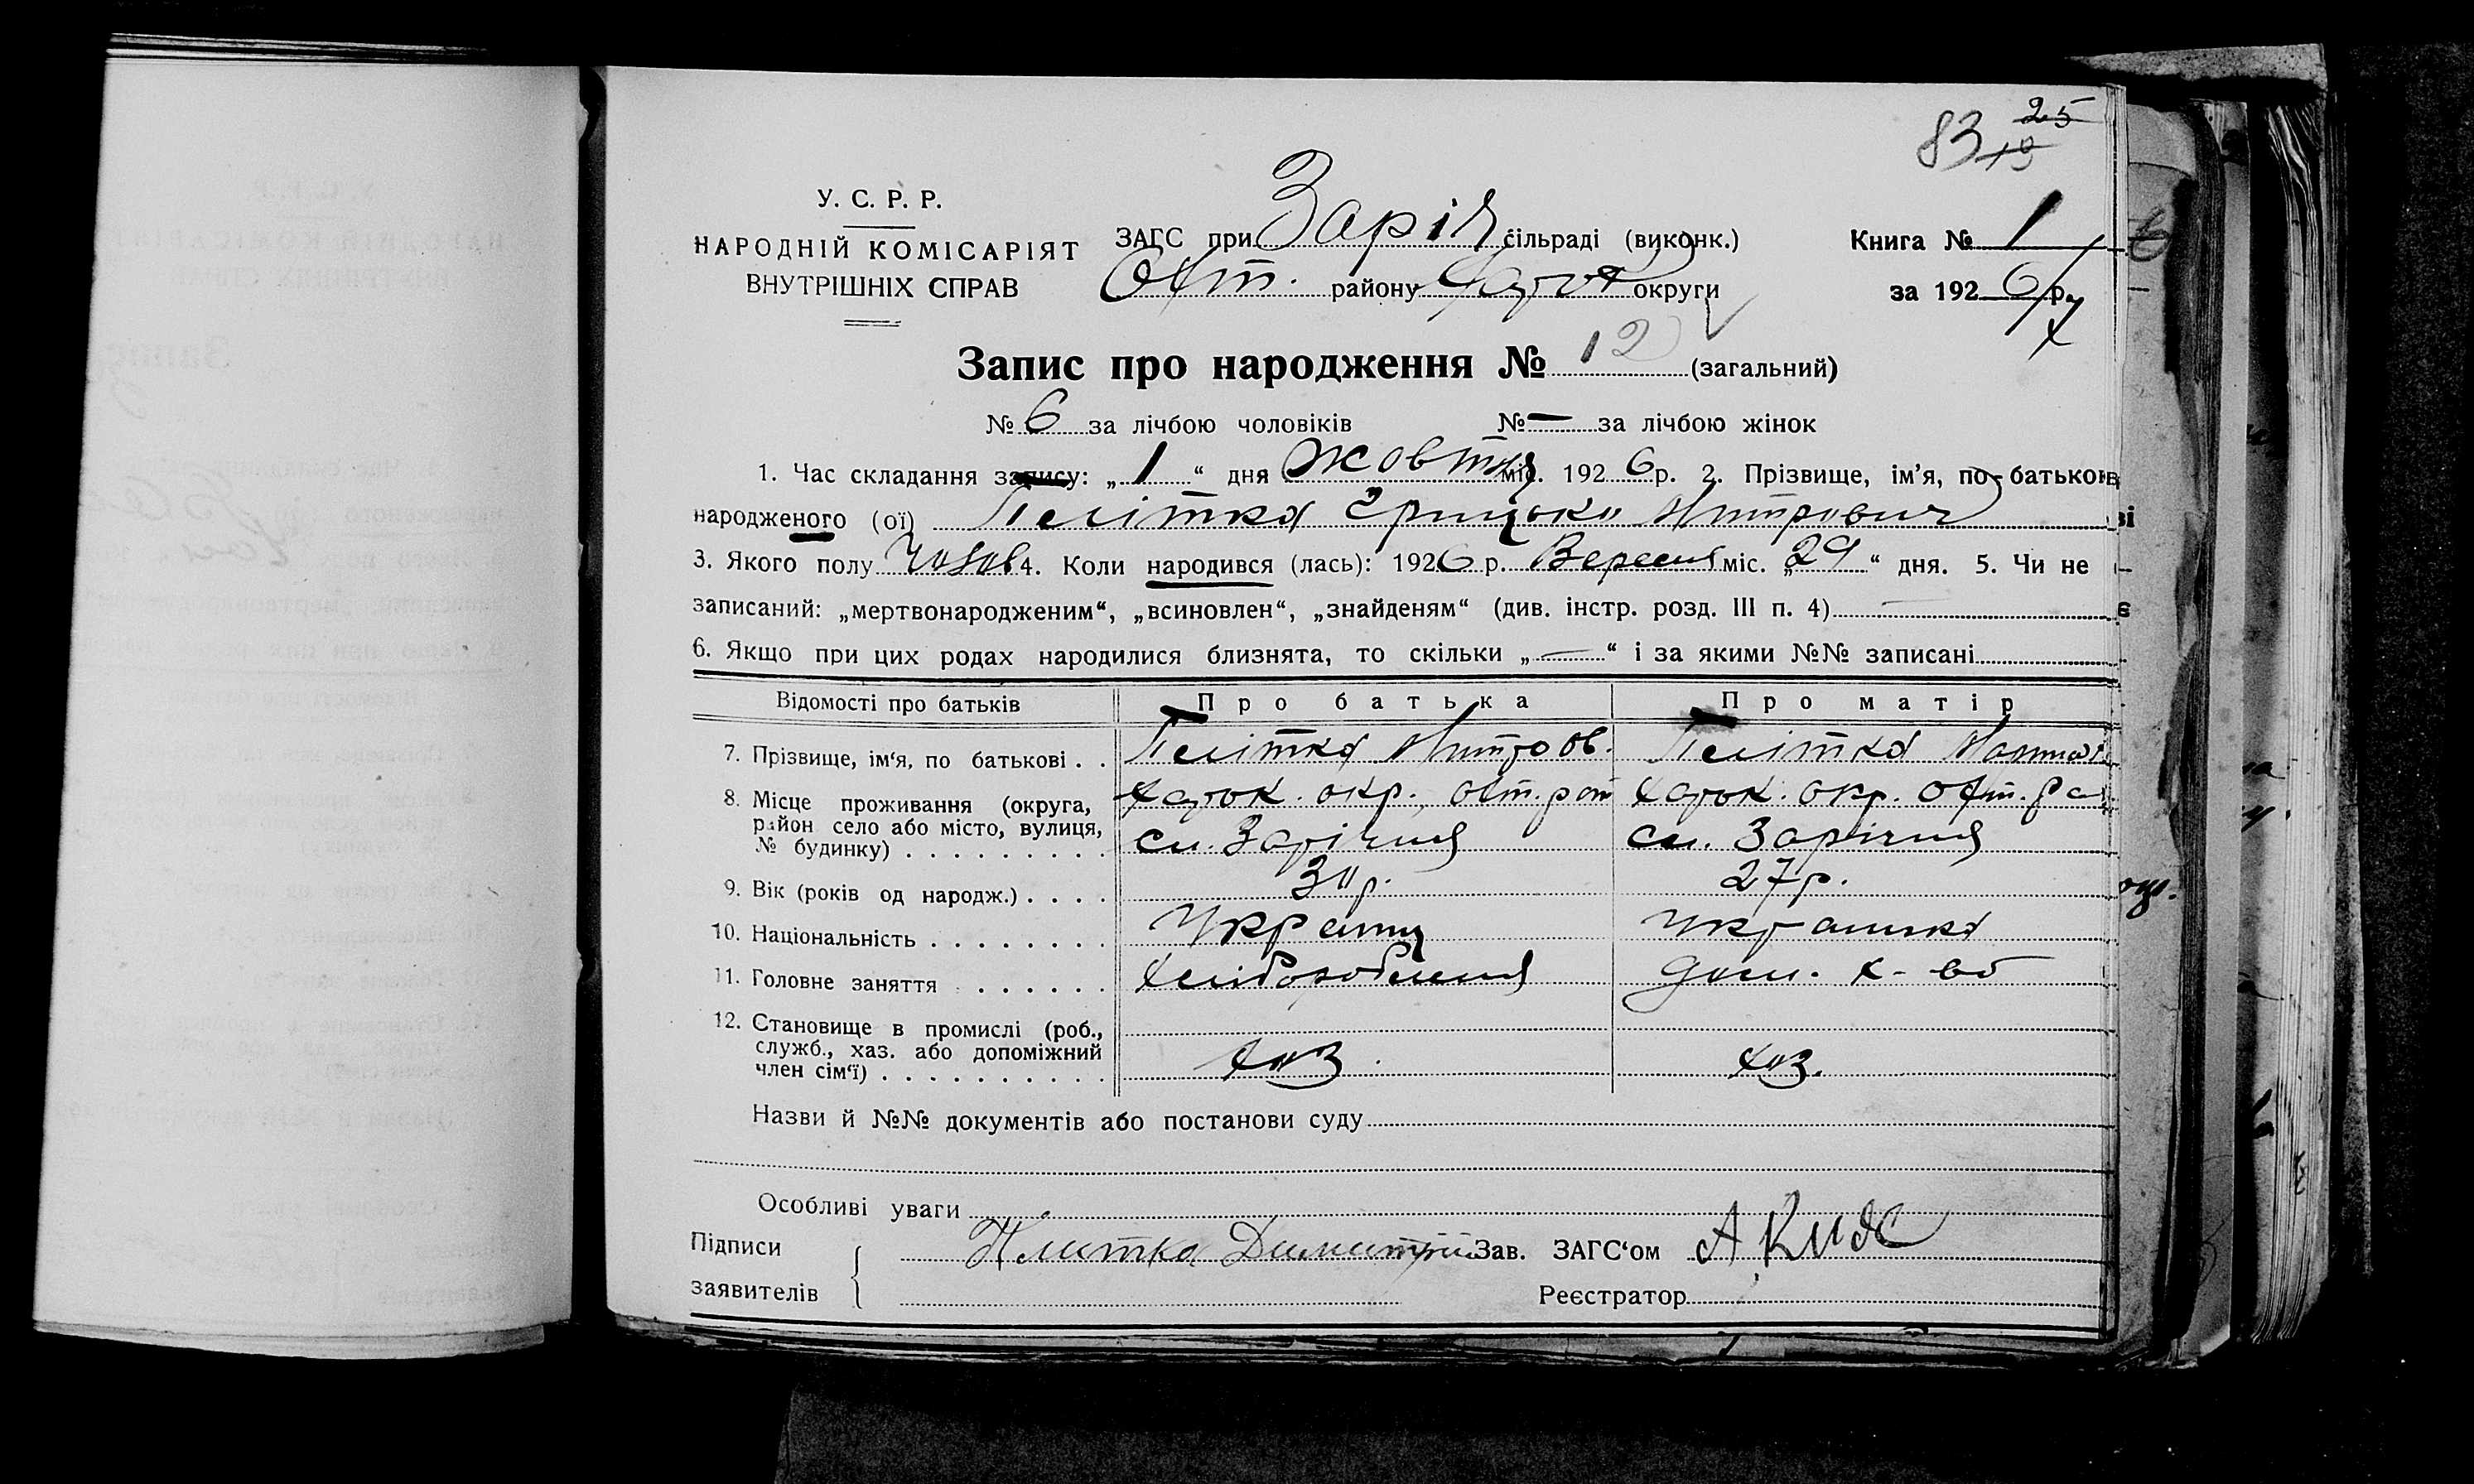 83 25
19
У. С. Р. Р.
НАРОДНІЙ КОМІСАРІЯТ
ВНУТРІШНІХ СПРАВ
ЗАГС при Заріч сільраді (виконк.)
Охт. району округи
Книга № 1
за 1926 р.
Запис про народження № 12 (загальний)
№ 6 за лічбою чоловіків № — за лічбою жінок
1. Час складання запису: „ 1 “ дня жовтня міс. 1926 р. 2. Прізвище, ім’я, по-батькові
народженого (ої) Плітка Грицько Митрович
3. Якого полу Чолов 4. Коли народився (лась): 1926 р. Вересня міс. „ 29 “ дня. 5. Чи не
записаний: „мертвонародженим“, „всиновлен“, „знайденям“ (див. інстр. розд. III п. 4) —
6. Якщо при цих родах народилися близнята, то скільки „ — “ і за якими №№ записані
Відомості про батьків Про батька Про матір
7. Прізвище, ім‘я, по батькові . . Плітка Плітка
8. Місце проживання (округа, район село або місто, вулиця, № будинку) . . . . . . . . .
Харьк. окр. Охт. рай Харьк. окр. Охт. ра
сл. Зарічня сл. Зарічня
9. Вік (років од народж.) . . . . 30 р. 27 р.
10. Національність . . . . . . . . Українц Українка
11. Головне заняття . . . . . . Хліборобення дом. х-во
12. Становище в промислі (роб.,
служб., хаз. або допоміжний
член сім‘ї) . . . . . . . . . . хаз. хаз.
Назви й №№ документів або постанови суду
Особливі уваги
Підписи
заявителів
Плитка Димитрий Зав. ЗАГС‘ом
Реєстратор